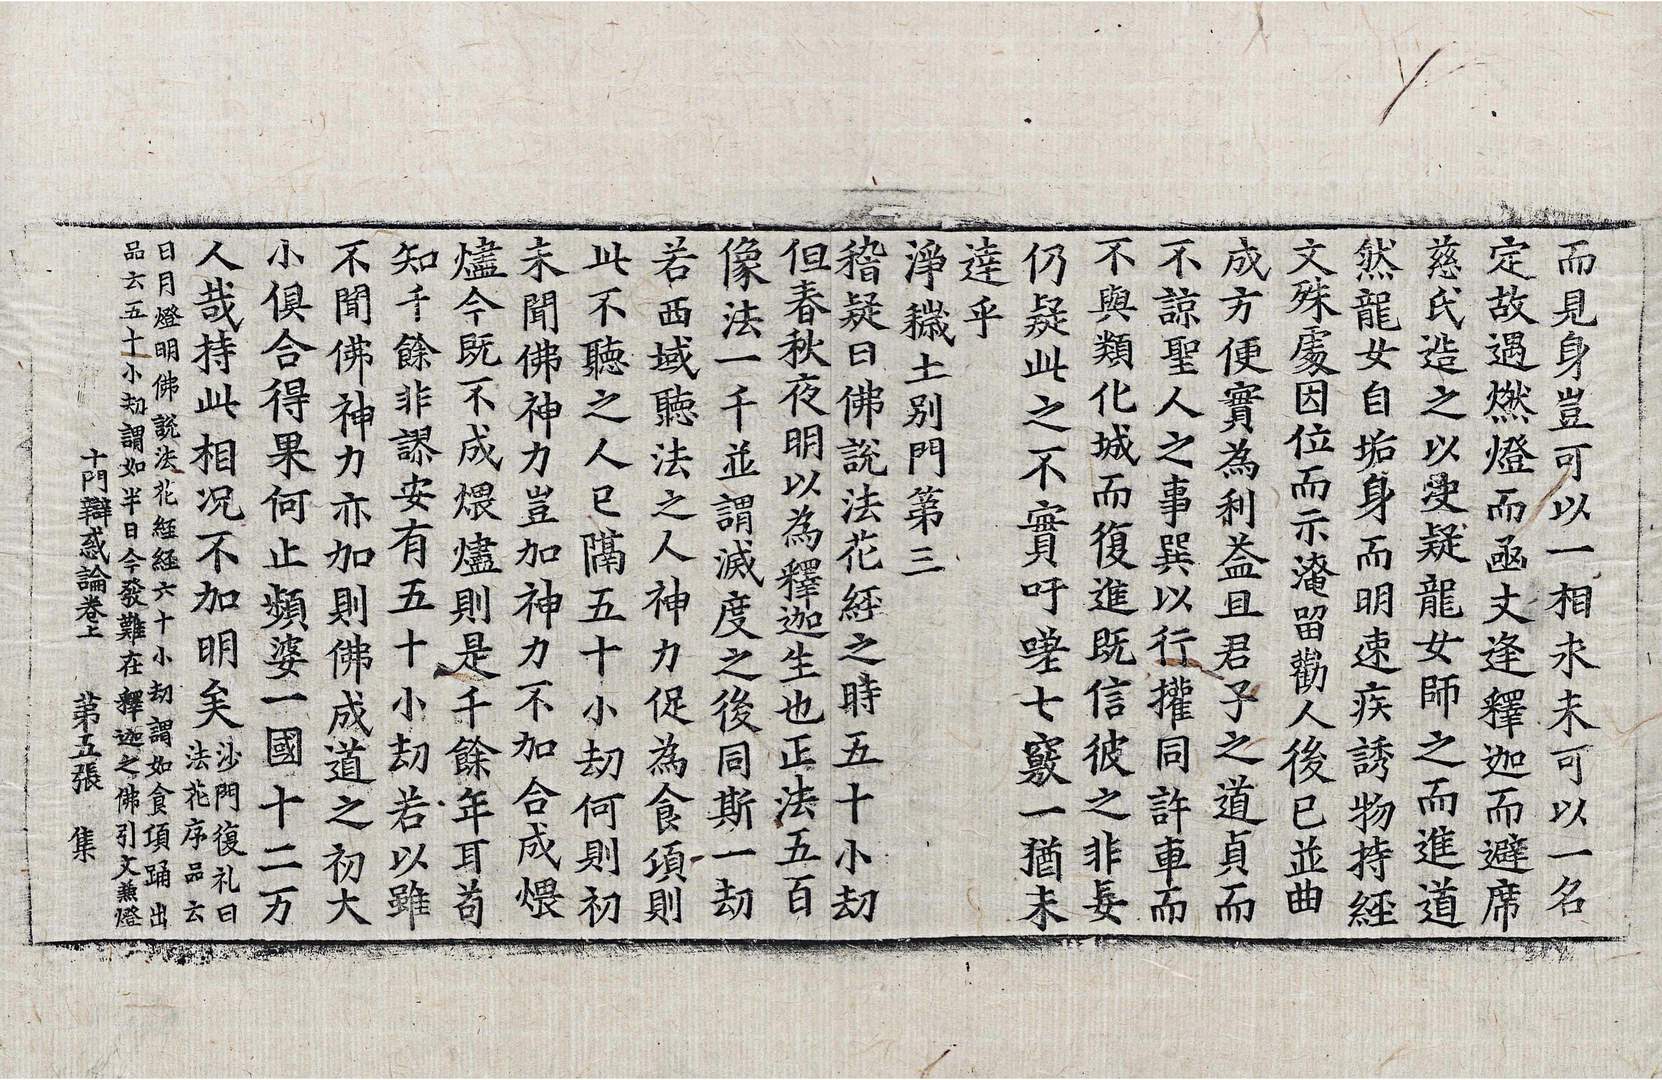 而見身豈可以一相求未可以一名
定故遇燃燈而函丈逢釋迦而避席
慈氏造之以受疑龍女師之而進道
然龍女自垢身而明速疾誘物持經
文殊處因位而示淹留勸人後已並曲
成方便實為利益且君子之道貞而
不諒聖人之事巽以行攉同許車而
不與類化城而復進既信彼之非妄
仍疑此之不實吁嗟七竅一猶未
達乎
淨穢土別門第三
稽疑曰佛說法花經之時五十小劫
但春秋夜明以為釋迦生也正法五百
像法一千並謂滅度之後同斯一劫
若西域聽法之人神力促為食頃則
此不聽之人已隔五十小劫何則初
未聞佛神力豈加神力不加合成煨
燼今既不成煨燼則是千餘年耳苟
知千餘非謬安有五十小劫若以雖
不聞佛神力亦加則佛成道之初大
小俱合得果何止頻婆一國十二万
人哉持此相況不加明矣沙門復礼曰
法花序品云
日月燈明佛說法花經經六十小劫謂如食頃踊出
品云五十小劫謂如半日今發難在釋迦之佛引文兼燈
十門辯惑論卷上 第五張 集